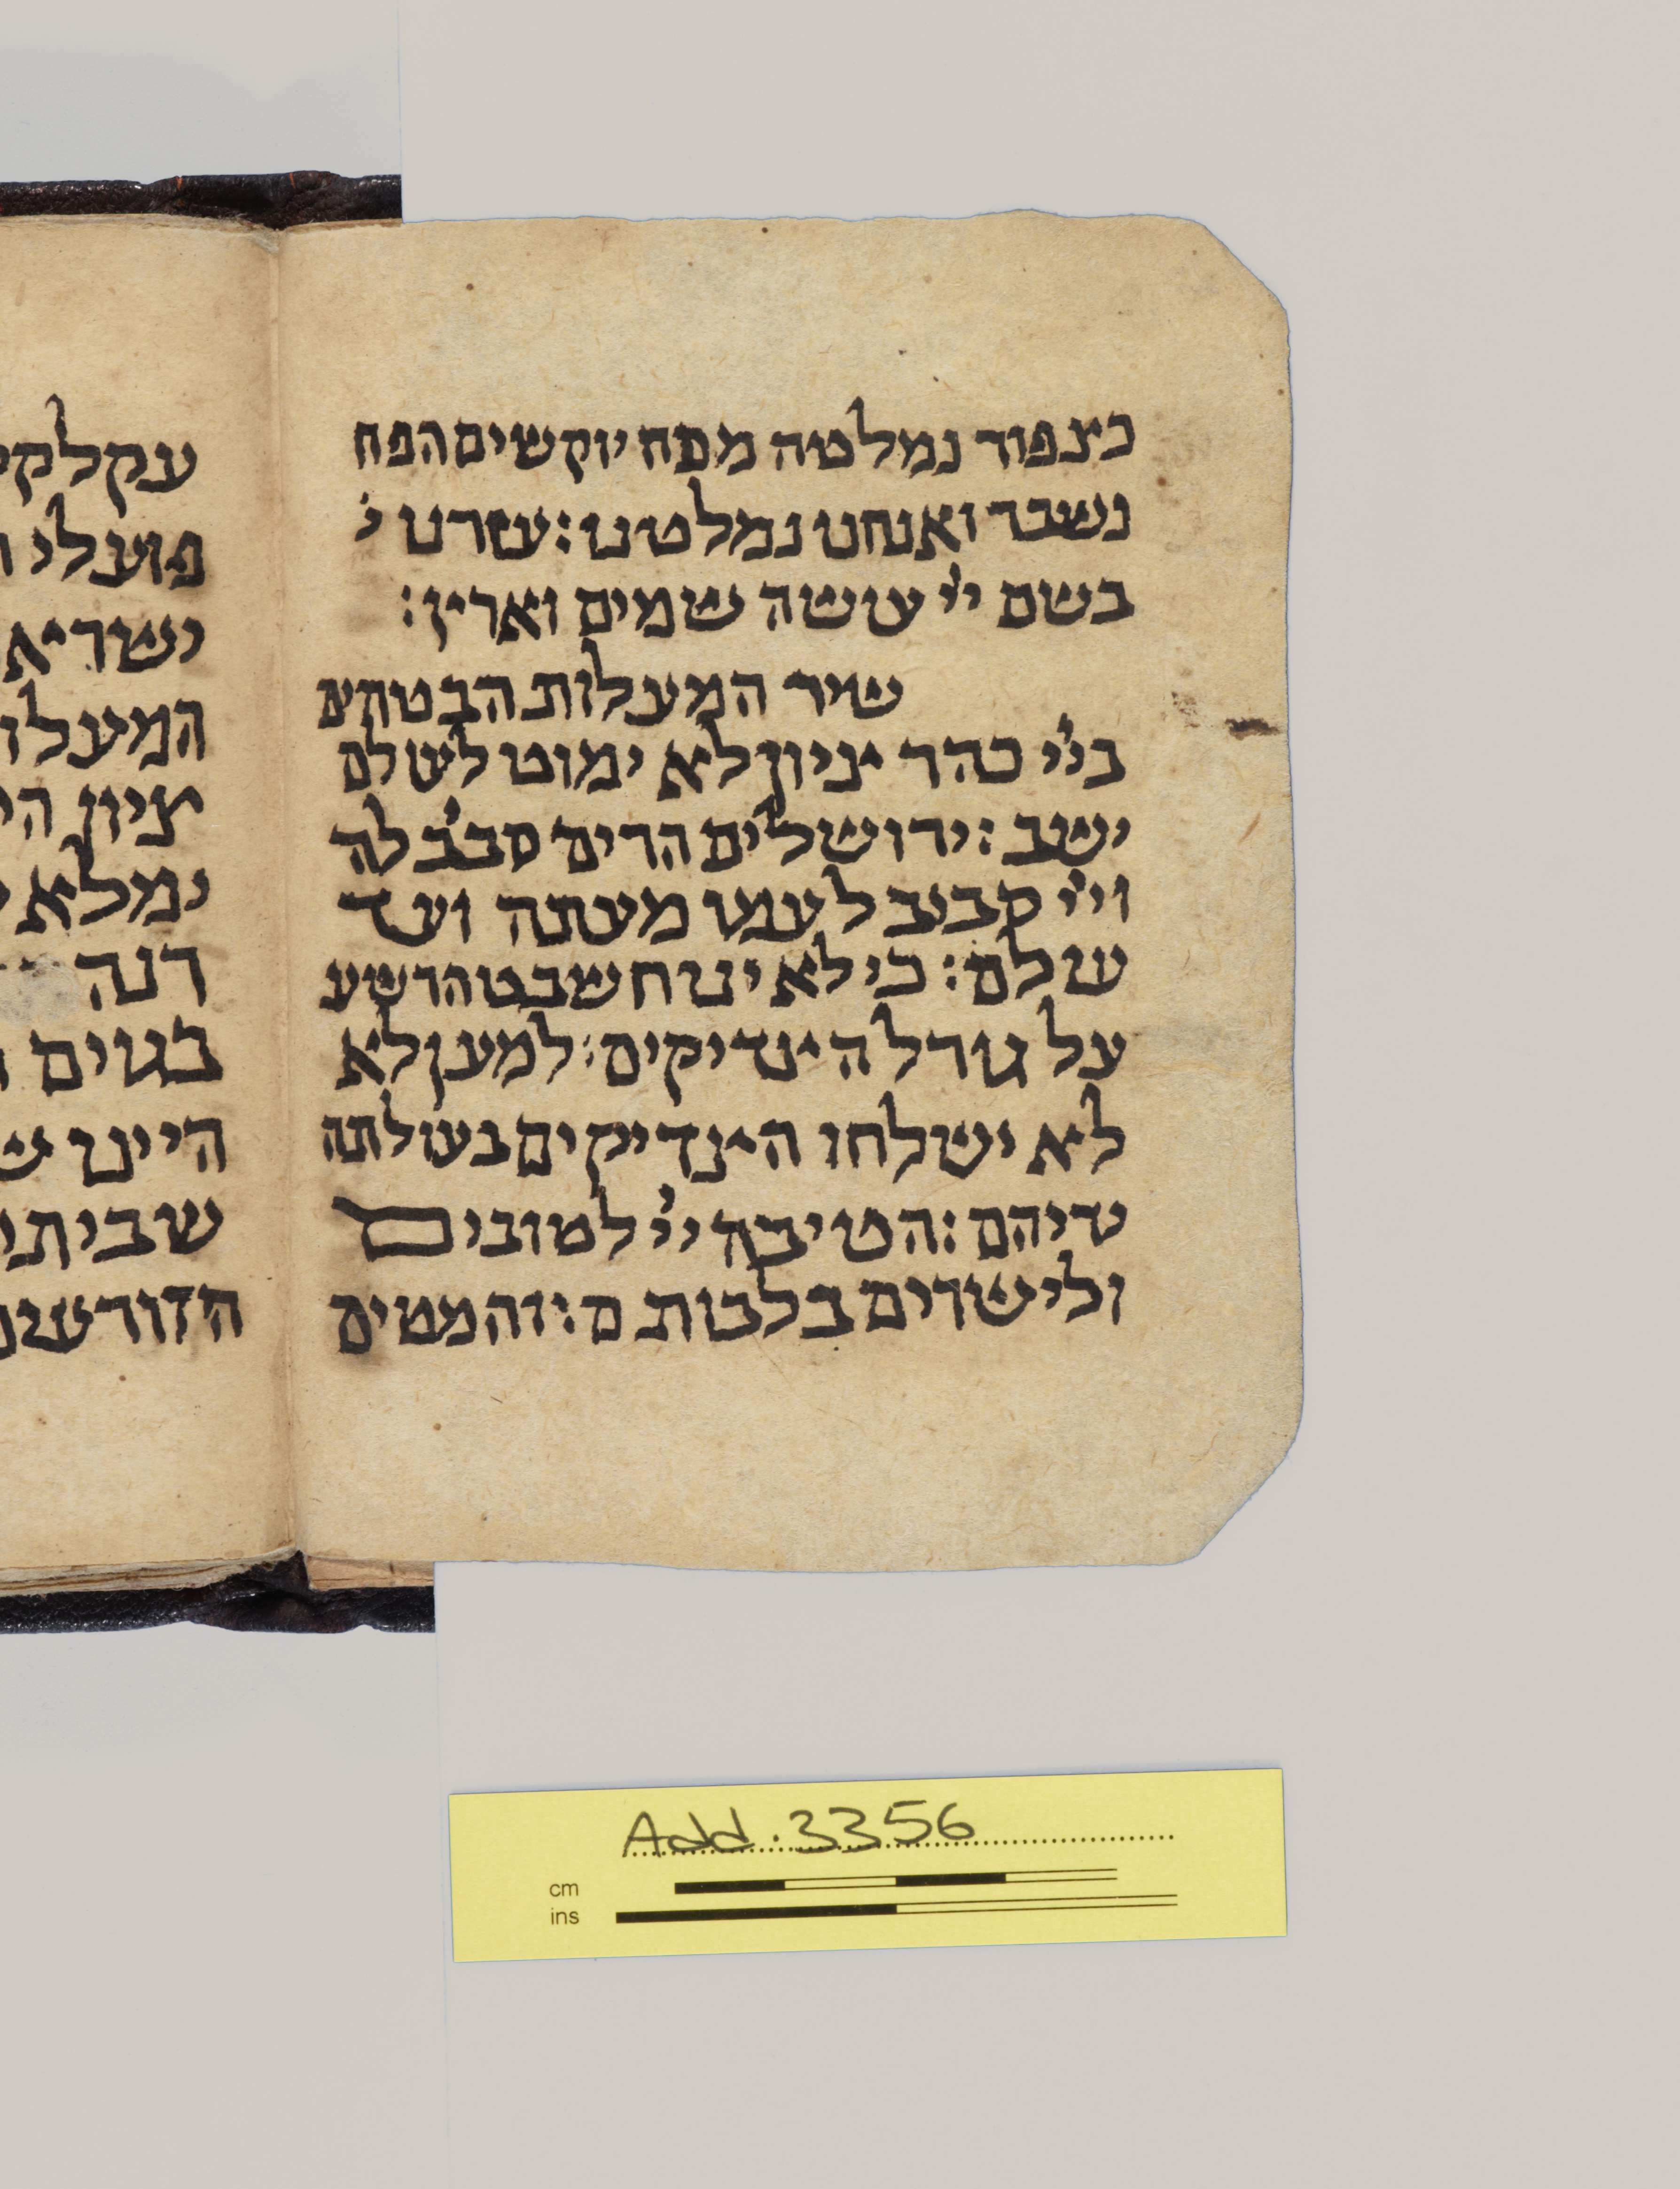 כצפור נמלטה מפח יוקשים הפח
נשבר ואנחנו נמלטנו׃ עזרנו
בשם ייי עושה שמים וארץ׃
שיר המעלות הבטחים
בייי כהר ציון לא ימוט לעולם
ישב׃ ירושלים הרים סביב לה
וייי סביב לעמו מעתה ועד
עולם׃ כי לא ינוח שבט הרשע
על גורל הצדיקים׃ למען לא
לא ישלחו הצדיקים בעולתה
ידיהם׃ הטיבה ייי לטובים
ולישרים בלבותם׃ והמטים
עקלקל
פועלי
ישרא
המעלו
ציון
ימלא
רנה
בגוים
היינו
שבית
הזורעים
Add. 3356
cm
ins